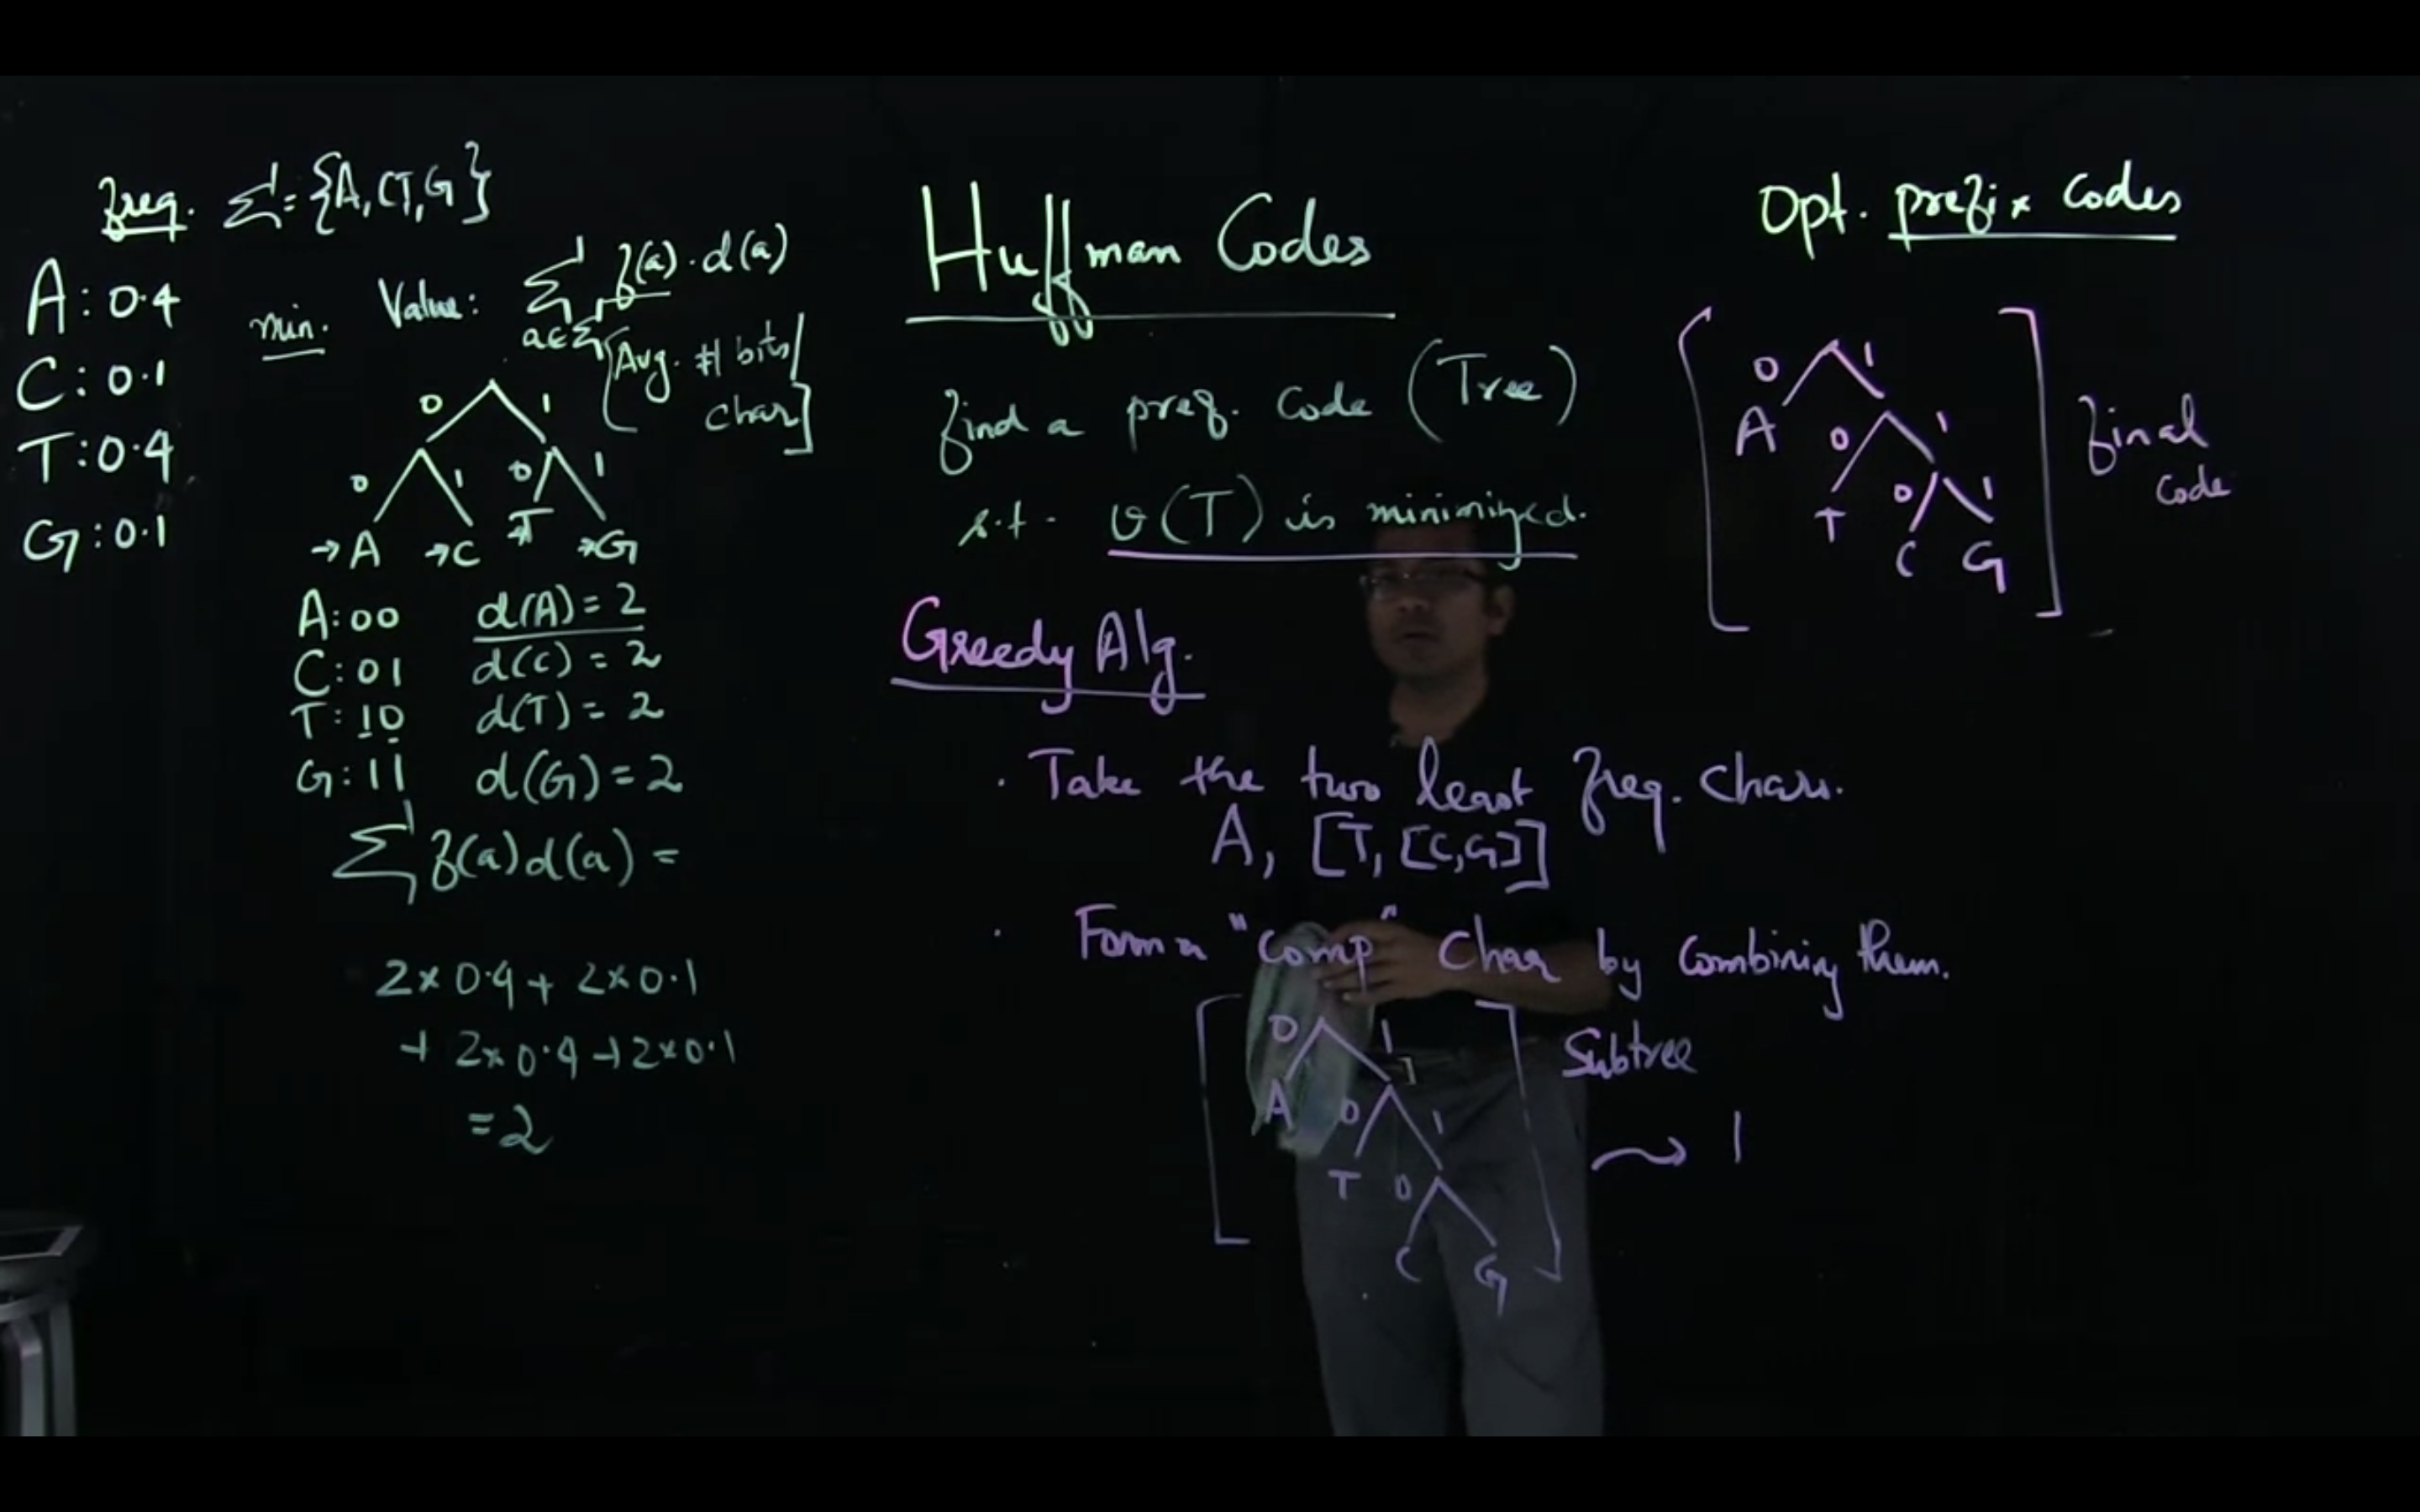 freq. Σ = {A, C, T, G}
A: 0.4
C: 0.1
T: 0.4
G: 0.1
min. Value: Σ f(a)·d(a)
a∈Σ
[Avg. # bits/
char]
0 1
0 1 0 1
→A →C →T →G
A: 00 d(A) = 2
C: 01 d(C) = 2
T: 10 d(T) = 2
G: 11 d(G) = 2
Σ f(a)d(a) =
2 × 0.4 + 2 × 0.1
+ 2 × 0.4 + 2 × 0.1
= 2
Huffman Codes
find a pref. Code (Tree)
s.t. v(T) is minimized.
Greedy Alg.
· Take the two least freq. chars.
A, [T, [C,G]]
· Form a "comp" Char by Combining them.
0 1
A 0 1
T 0
C G
Subtree
1
Opt. prefix codes
0 1
A 0 1
T 0 1
C G
final
code